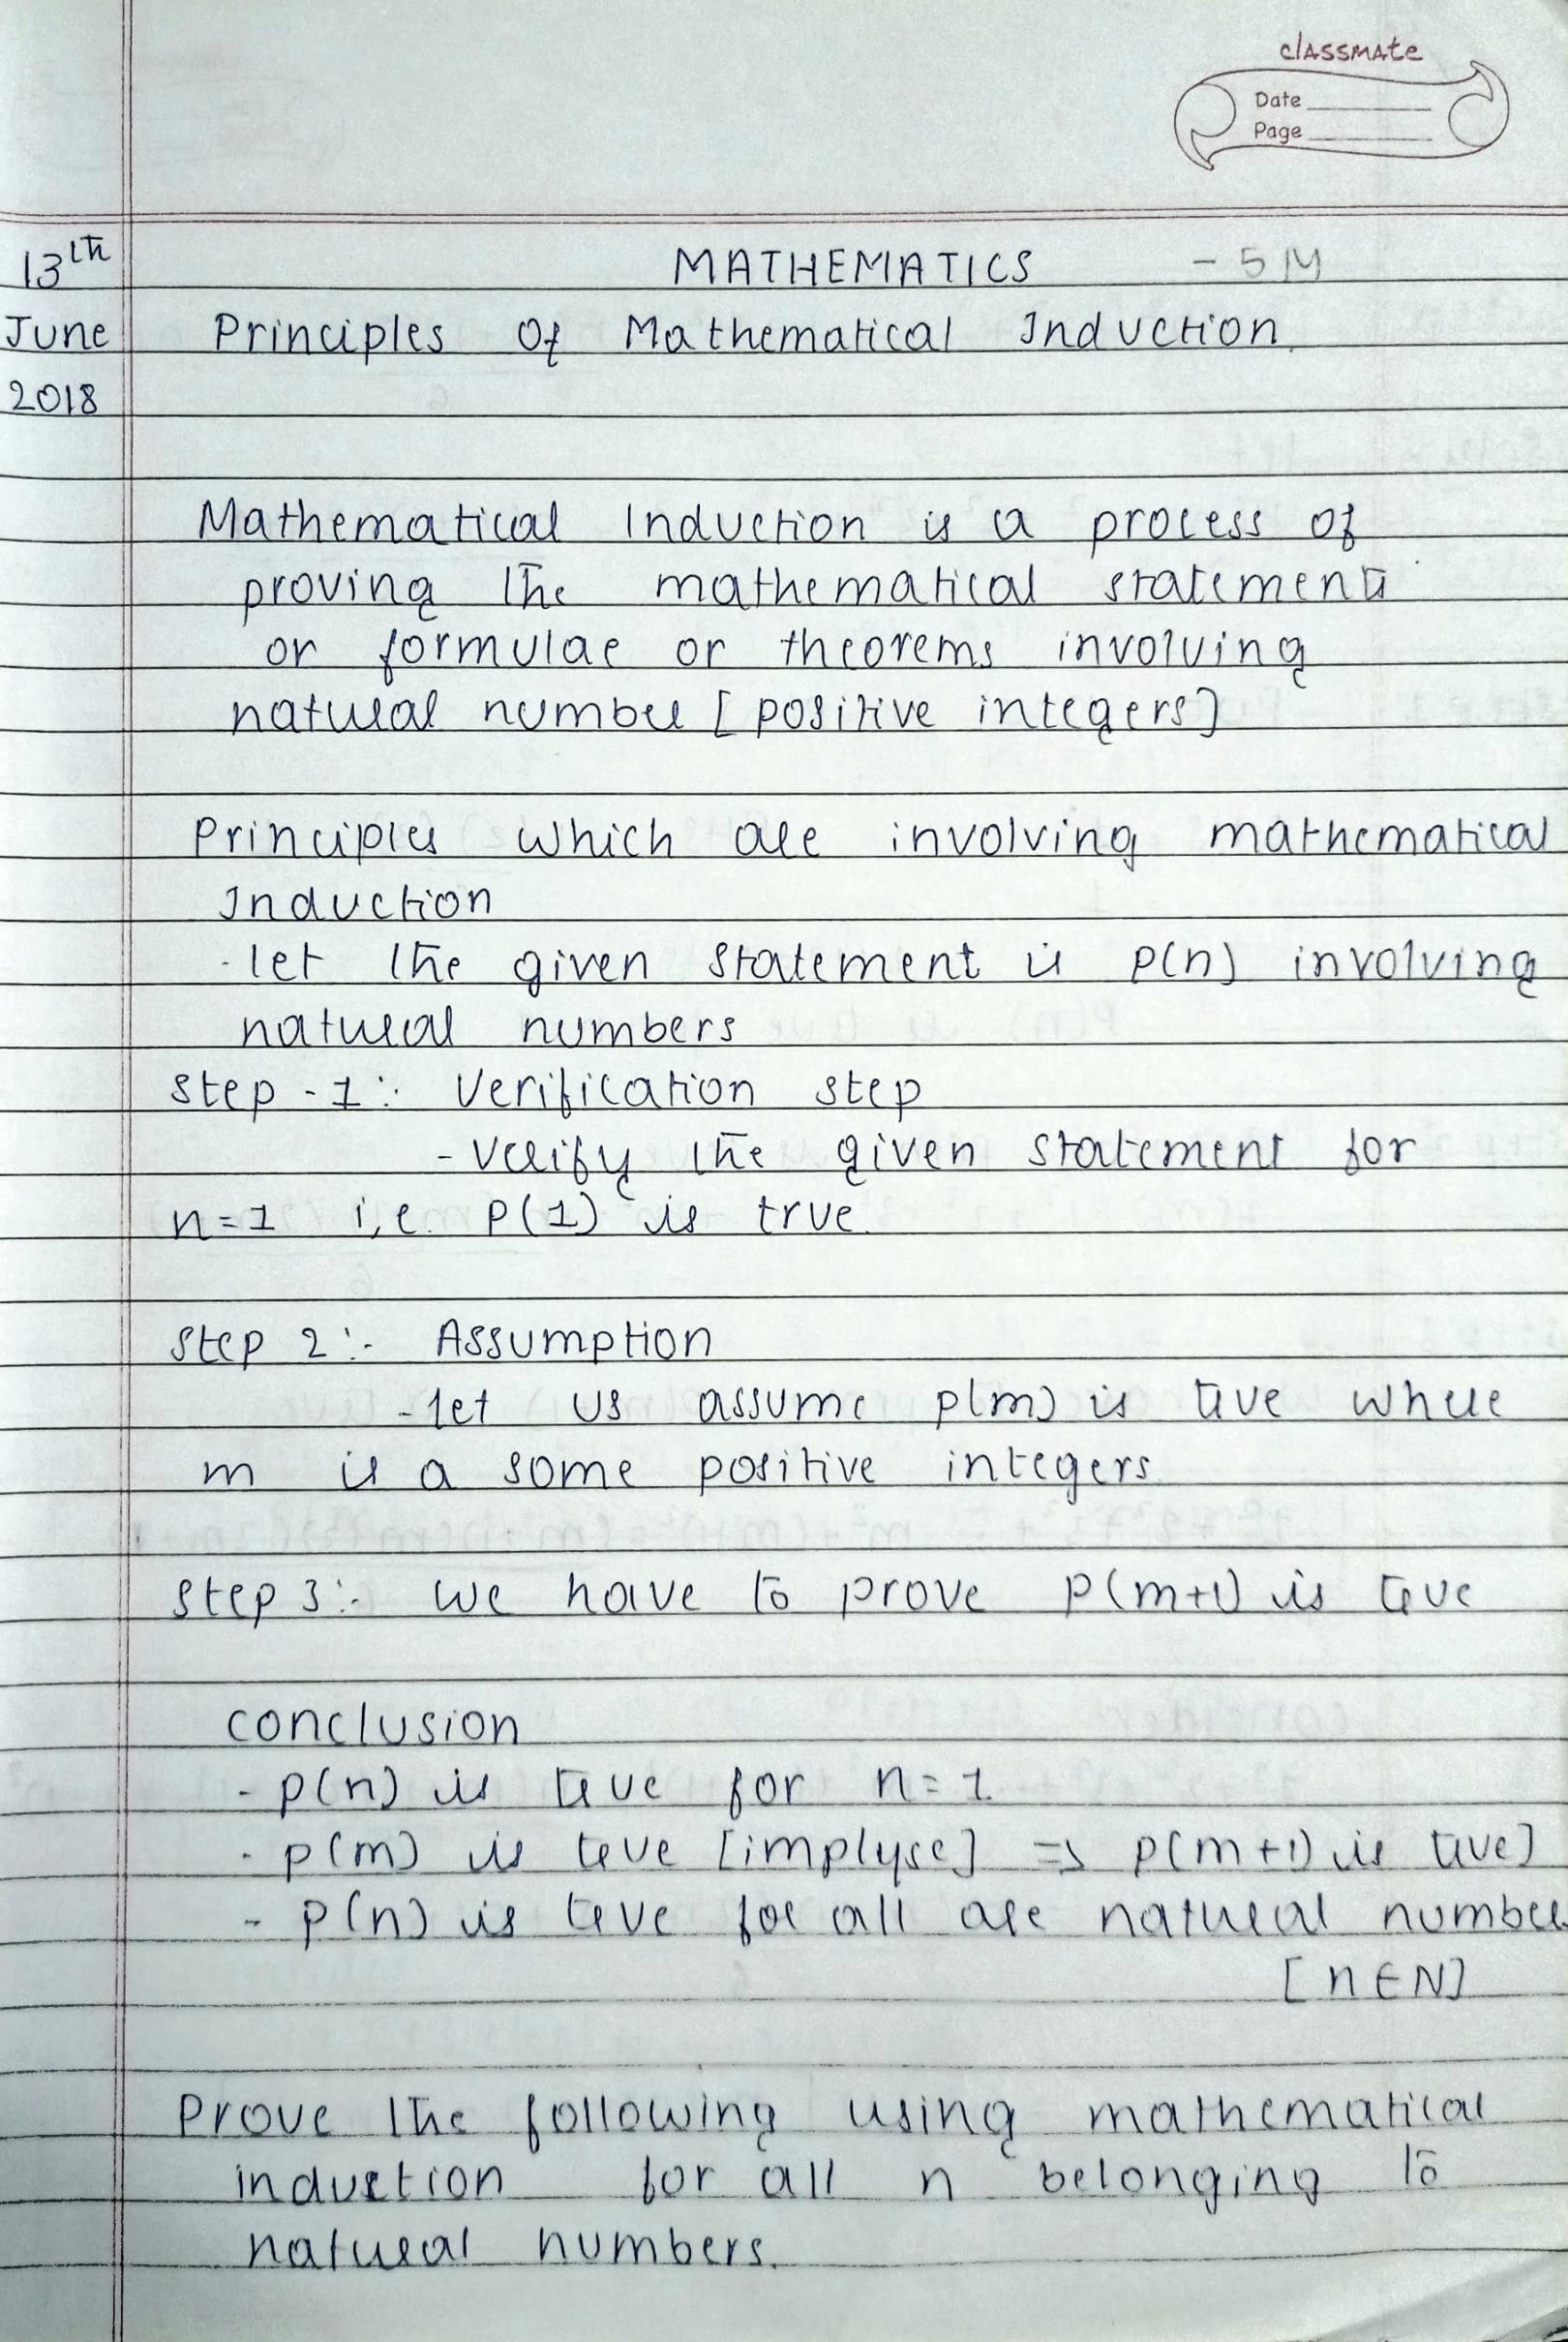 classmate
Date
Page
13th
MATHEMATICS - 5M
June
Principles Of Mathematical Induction.
2018
Mathematical Induction is a process of
proving the mathematical statements
or formulae or theorems involving
natural number [positive integers]
Principles which are involving mathematical
Induction
-let the given statement is p(n) involving
natural numbers
Step -1:- Verification step
-Verify the given statement for
n=1 i,e. P(1) is true.
Step 2:- Assumption
-let us assume p(m) is true where
m is a some positive integers
Step 3:- we have to prove P(m+1) is true
conclusion
- p(n) is true for n=1.
- p(m) is true [implyse] => p(m+1) is true]
- p(n) is true for all are natural number
[n∈N]
Prove the following using mathematical
induction for all n belonging to
natural numbers.